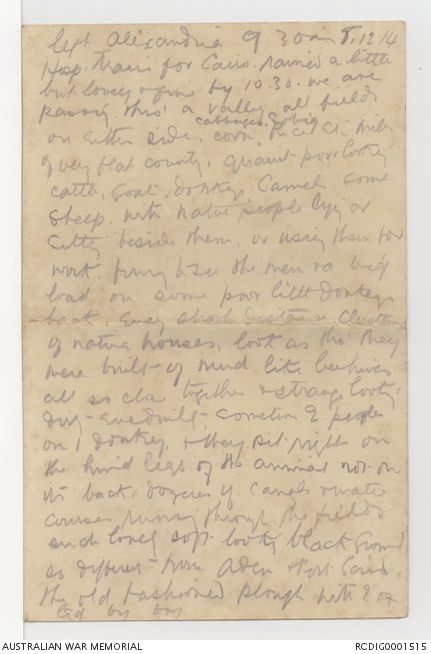 left Alexandria 9 30 am 8.12.14
Hosp. Train for Cairo rained a little
but lovely & fine by 10.30. we are
passing thro' a valley all fields
cabbages
on either side, corn, Rice etc miles
of very flat country, quaint poor looking
cattle, Goats, donkeys, Camels some
sheep. with native people lying or
sitting beside them, or using them for
work. funny to see the men & a big
load on some poor little donkeys
back, every short distance clusters
of native houses, look as tho' they
were built of mud like beehives
all so close together & strange looking
dirty sometimes 2 people
on 1 donkey, & they sit right on
the hind legs of the animal not on
its back, dozens of Canals & water
courses running through the fields
such lovely soft looking black ground
so different from Aden & Port Said.
the old fashioned plough with 2 ox
led by boy
AUSTRALIAN WAR MEMORIAL
RCDIG0001515